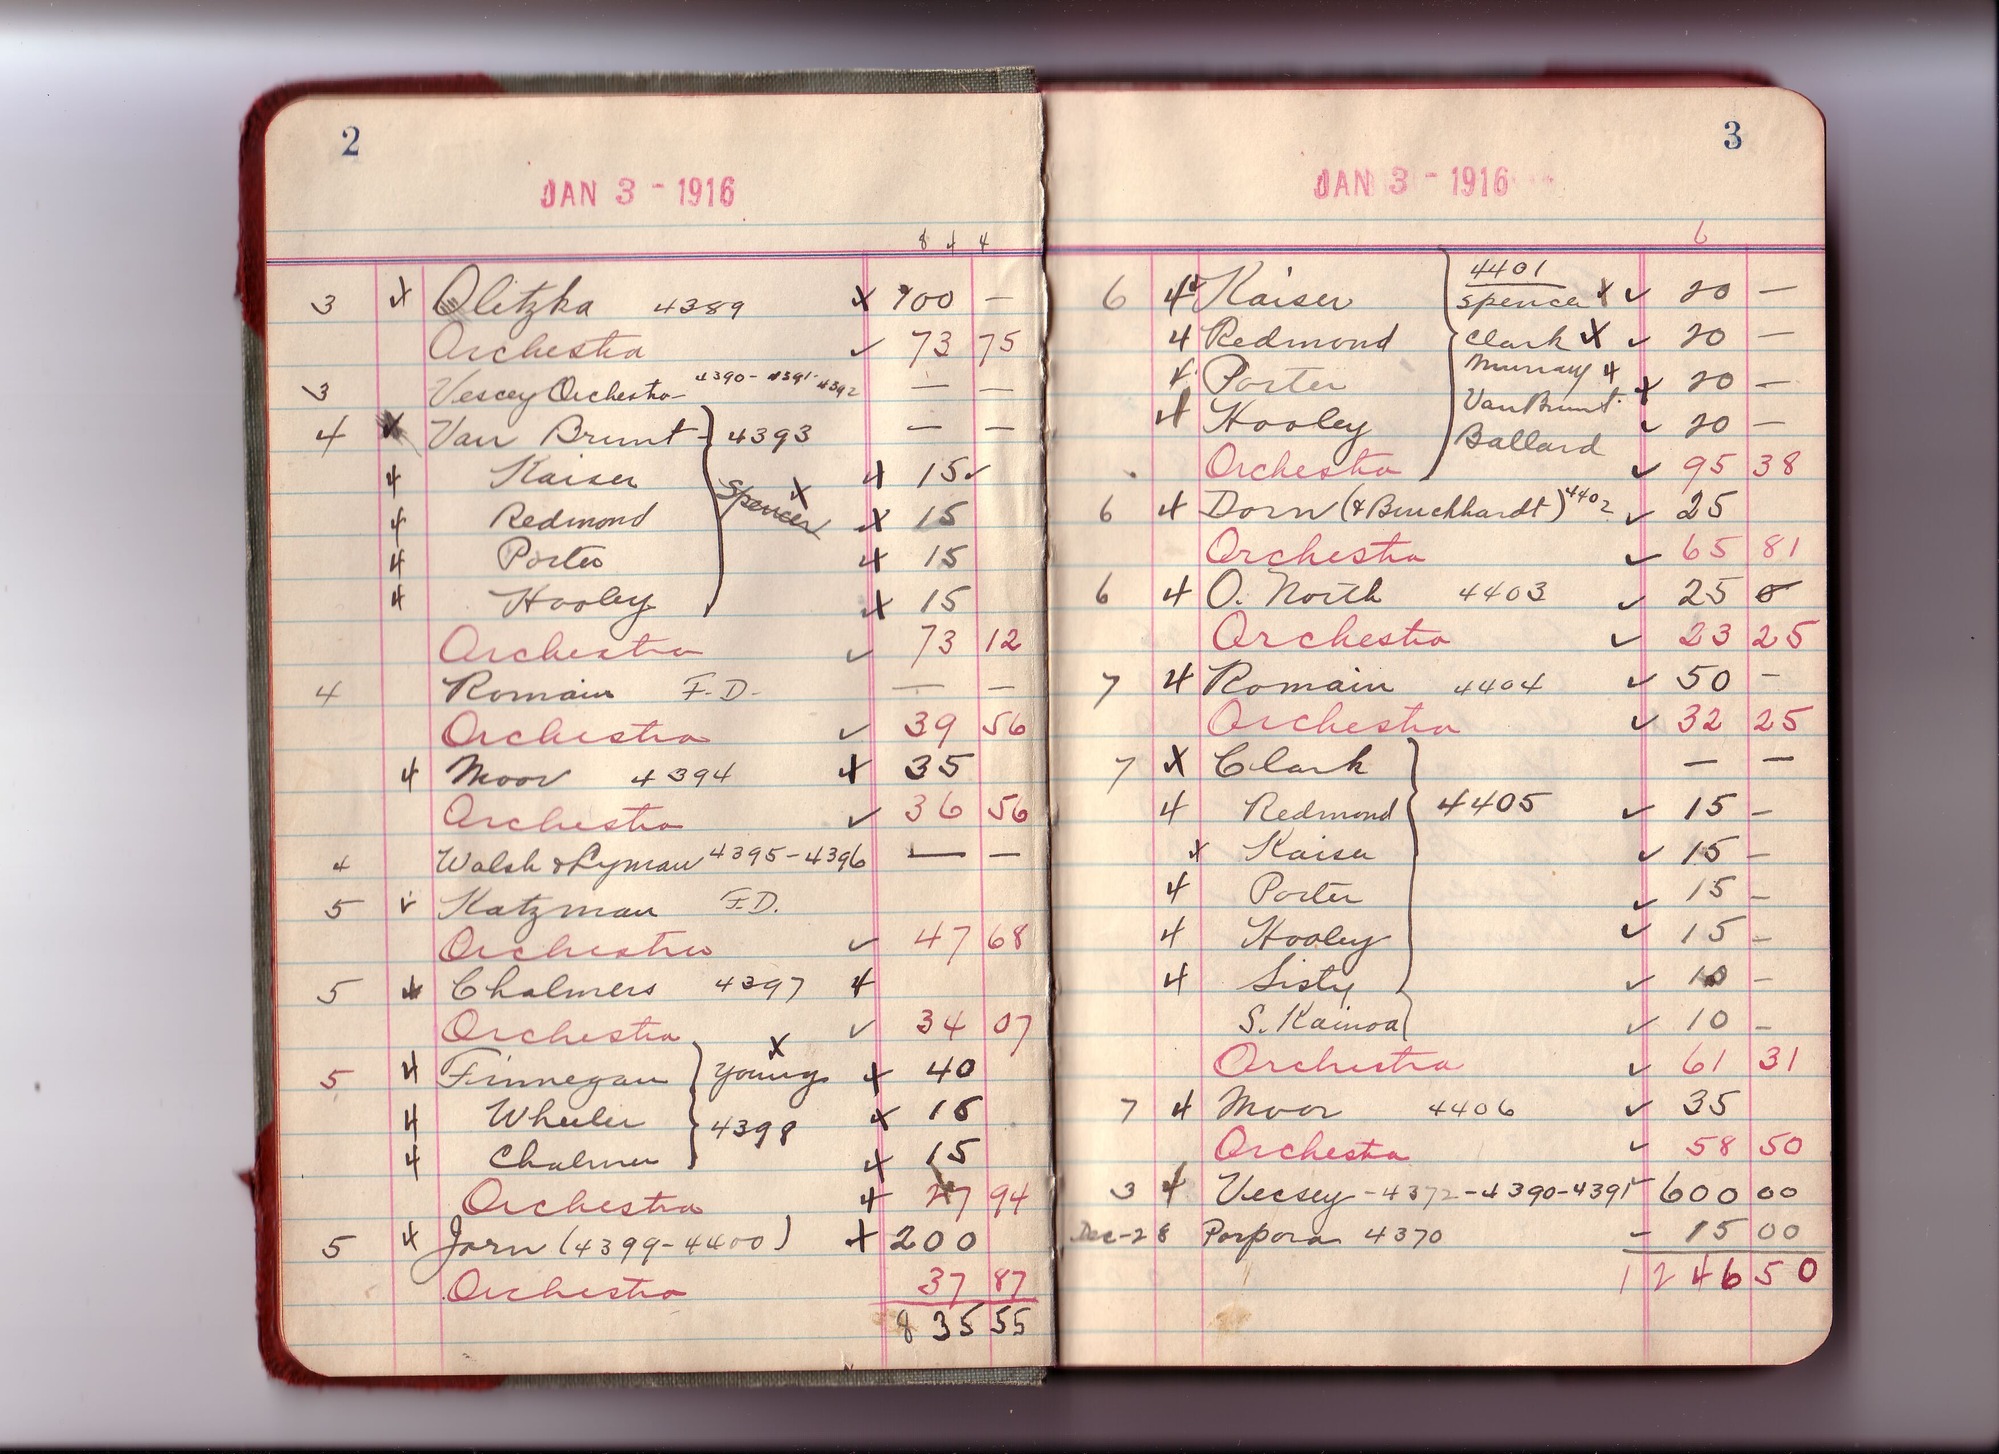 2
JAN 3 - 1916
8 4 4
3 x Olitzka 4389 x 100 —
Orchestra ✓ 73 75
3 Vescey Orchestra 4390 - 4391 - 4392 — —
4 x Van Brunt 4393 — —
4 Kaiser x 15 ✓
4 Redmond Spencer x x 15
4 Porter x 15
4 Hooley x 15
Orchestra ✓ 73 12
4 Romain F.D. — —
Orchestra ✓ 39 56
4 Moor 4394 x 35
Orchestra ✓ 36 56
4 Walsh & Lyman 4395-4396 — —
5 ✓ Katzman F.D.
Orchestra ✓ 47 68
5 x Chalmers 4397 x
Orchestra ✓ 34 07
5 4 Finnegan Young x x 40
4 Wheeler 4398 x 15
4 Chalmer x 15
Orchestra x 27 94
5 x Jorn (4399-4400) x 200
Orchestra 37 87
835 55
3
JAN 3 - 1916
6
4401
6 4 Kaiser Spencer x ✓ 20 —
4 Redmond Clark x ✓ 20 —
4 Porter Murray 4 x 20 —
Van Brunt
4 Hooley ✓ 20 —
Ballard
Orchestra ✓ 95 38
6 4 Dorn (& Burchhardt) 4402 ✓ 25
Orchestra ✓ 65 81
6 4 O. North 4403 ✓ 25 0
Orchestra ✓ 23 25
7 4 Romain 4404 ✓ 50 -
Orchestra ✓ 32 25
7 x Clark — —
4 Redmond 4405 ✓ 15 -
x Kaiser ✓ 15 -
4 Porter ✓ 15 -
4 Hooley ✓ 15 -
4 Listy ✓ 10 -
S. Kainoa ✓ 10 -
Orchestra ✓ 61 31
7 4 Moor 4406 ✓ 35
Orchestra ✓ 58 50
3 4 Vecsey - 4372 - 4390 - 4391 ✓ 600 00
Dec-28 Porpora 4370 - 15 00
1246 50